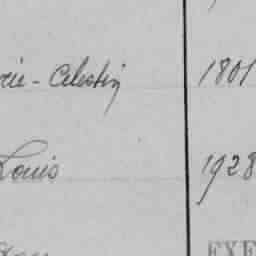 rie-Celestin 1801
Louis 1928
EXE